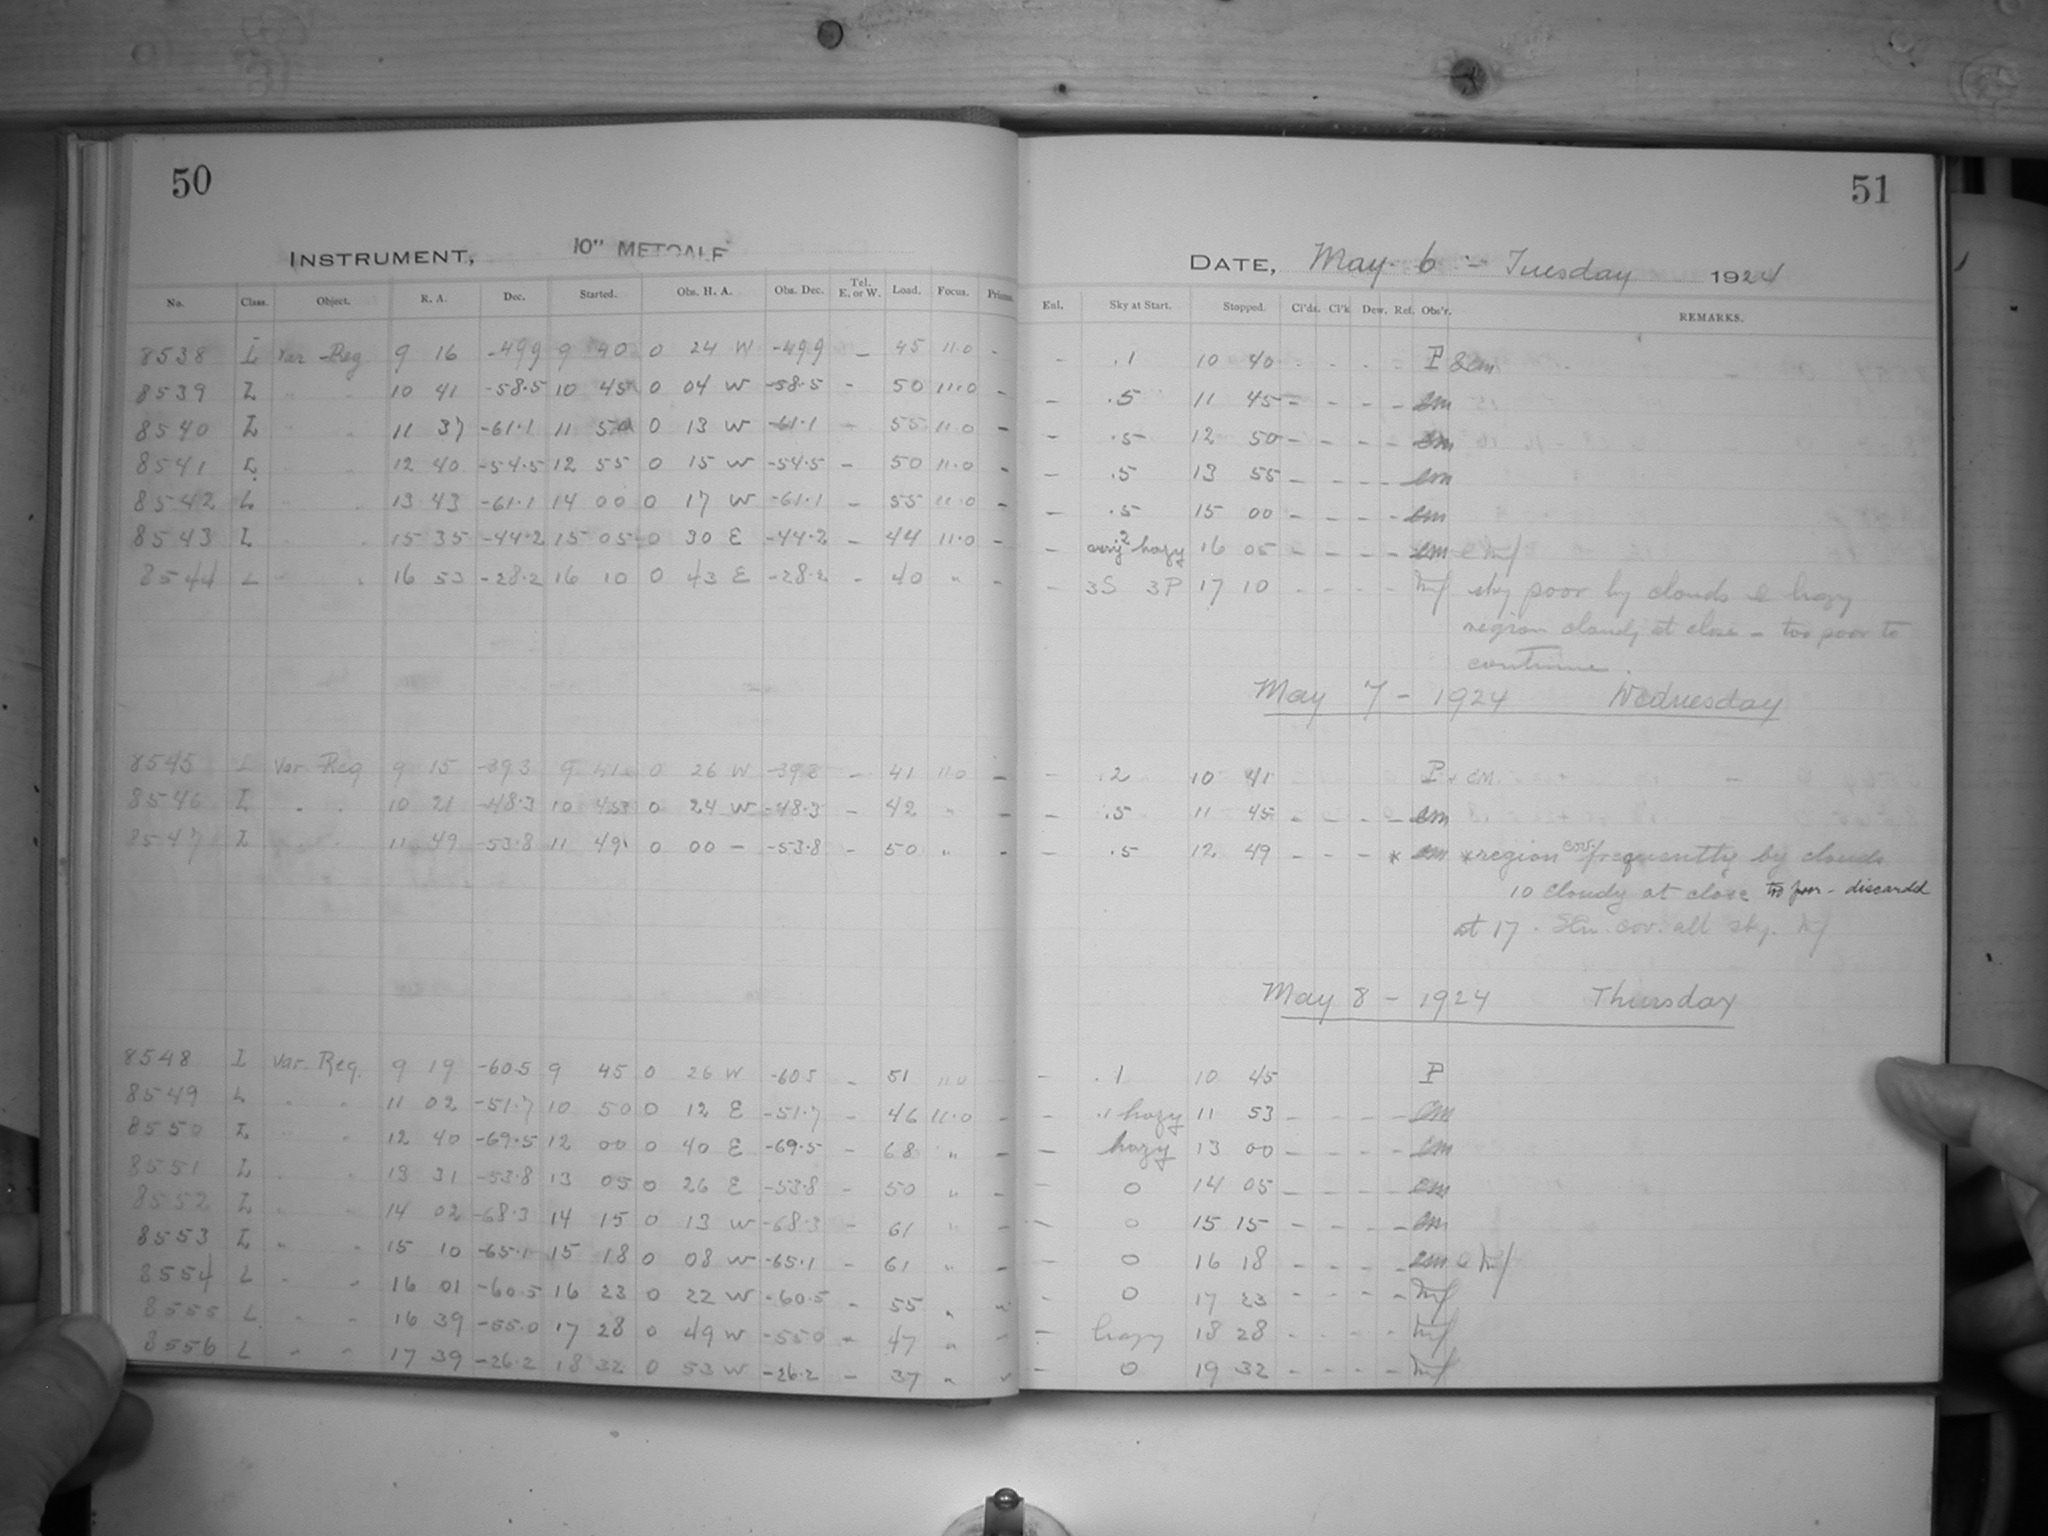 50
INSTRUMENT, 10" METCALF
No. Class. Object. R. A. Dec. Started. Obs. H. A. Obs. Dec. Tel. E. or W. Load. Focus.
8538 I Var Reg 9 16 -49.9 9 40 0 24 W -49.9 - 45 11.0 -
8539 I " " 10 41 -58.5 10 45 0 04 W -58.5 - 50 11.0 -
8540 I " " 11 37 -61.1 11 50 0 13 W -61.1 - 55 11.0 -
8541 I " " 12 40 -54.5 12 55 0 15 W -54.5 - 50 11.0 -
8542 L " " 13 43 -61.1 14 00 0 17 W -61.1 - 55 11.0 -
8543 I " " 15 35 -44.2 15 05 0 30 E -44.2 - 44 11.0 -
8544 L " " 16 53 -28.2 16 10 0 43 E -28.2 - 40 " -
8545 I Var Reg 9 15 -39.3 9 41 0 26 W -39.3 - 41 11.0 -
8546 I " " 10 21 -48.3 10 45 0 24 W -48.3 - 42 " -
8547 I " " 11 49 -53.8 11 49 0 00 - -53.8 - 50 " -
8548 I Var. Reg. 9 19 -60.5 9 45 0 26 W -60.5 - 51 11.0
8549 L " " 11 02 -51.7 10 50 0 12 E -51.7 - 46 11.0 -
8550 I " " 12 40 -69.5 12 00 0 40 E -69.5 - 68 " -
8551 I " " 13 31 -53.8 13 05 0 26 E -53.8 - 50 " -
8552 I " " 14 02 -68.3 14 15 0 13 W -68.3 - 61 " -
8553 I " " 15 10 -65.1 15 18 0 08 W -65.1 - 61 " -
8554 L " " 16 01 -60.5 16 23 0 22 W -60.5 - 55 " "
8555 L " " 16 39 -55.0 17 28 0 49 W -55.0 - 47 " -
8556 L " " 17 39 -26.2 18 32 0 53 W -26.2 - 37 " "
51
DATE, May 6 - Tuesday 1924
Enl. Sky at Start. Stopped. Cl'ds. Cl'k Dew. Ref. Obs'r. REMARKS.
- .1 10 40 - - - - P & em
- .5 11 45 - - - - em
- .5 12 50 - - - - em
- .5 13 55 - - - - em
- .5 15 00 - - - - em
- 2 hazy 16 05 - - - - em
- 3S 3P 17 10 - - - - sky poor by clouds & hazy
region cloudy at close - too poor to
continue.
May 7 - 1924 Wednesday
- .2 10 41 P + em
- .5 11 45 - - - - em
- .5 12 49 - - - * em * region cov. frequently by clouds
10 cloudy at close too poor - discarded
at 17 cov. all sky.
May 8 - 1924 Thursday
- .1 10 45 P
- .1 hazy 11 53 - - - - em
- hazy 13 00 - - - - em
- 0 14 05 - - - - em
- 0 15 15 - - - - em
- 0 16 18 - - - - em
- 0 17 23 - - - -
- hazy 18 28 - - - -
- 0 19 32 - - - -